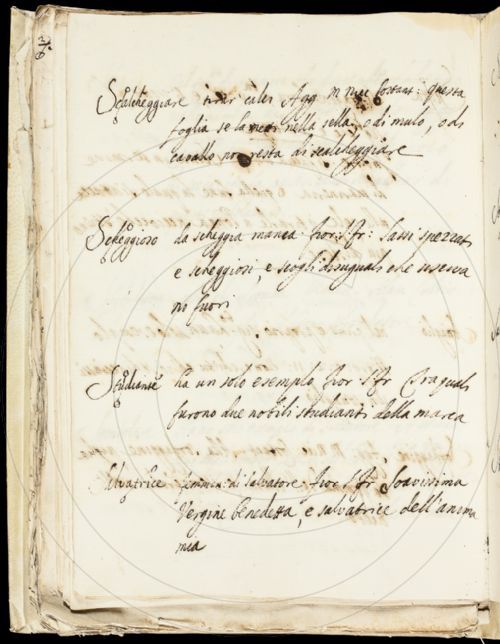 Scalcheggiare tirar calci Agg. m mac fortaat: questa
foglia se la metti nella sella, o di mulo, o di
cavallo non resta di scalcheggiare
Scheggioso da scheggia manca. Fior. S. Fr: Sassi spezzati
e scheggiosi, e scogli disuguali che usciva
no fuori
Studiante ha un solo esempio. Fior. S. Fr. Fra quali
furono due nobili studianti della marca
Salvatrice femmin: di Salvatore. Fior. S. Fr. Soavissima
Vergine benedetta, e salvatrice dell'anima
mia